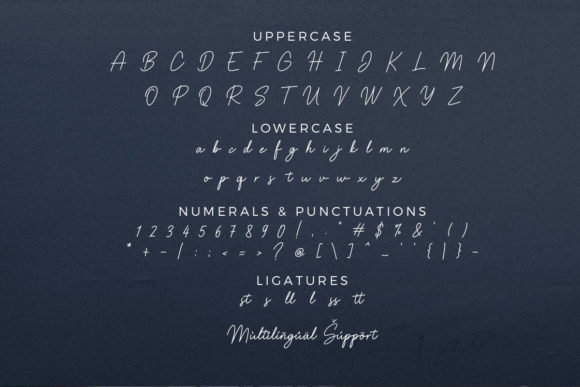 UPPERCASE
A B C D E F G H I J K L M N
O P Q R S T U V W X Y Z
LOWERCASE
a b c d e f g h i j k l m n
o p q r s t u v w x y z
NUMERALS & PUNCTUATIONS
1 2 3 4 5 6 7 8 9 0 ! , . " # $ % & ' ( )
* + - / : ; < = > ? @ [ \ ] ^ _ ' ' { | } ~
LIGATURES
st s ll l ss tt